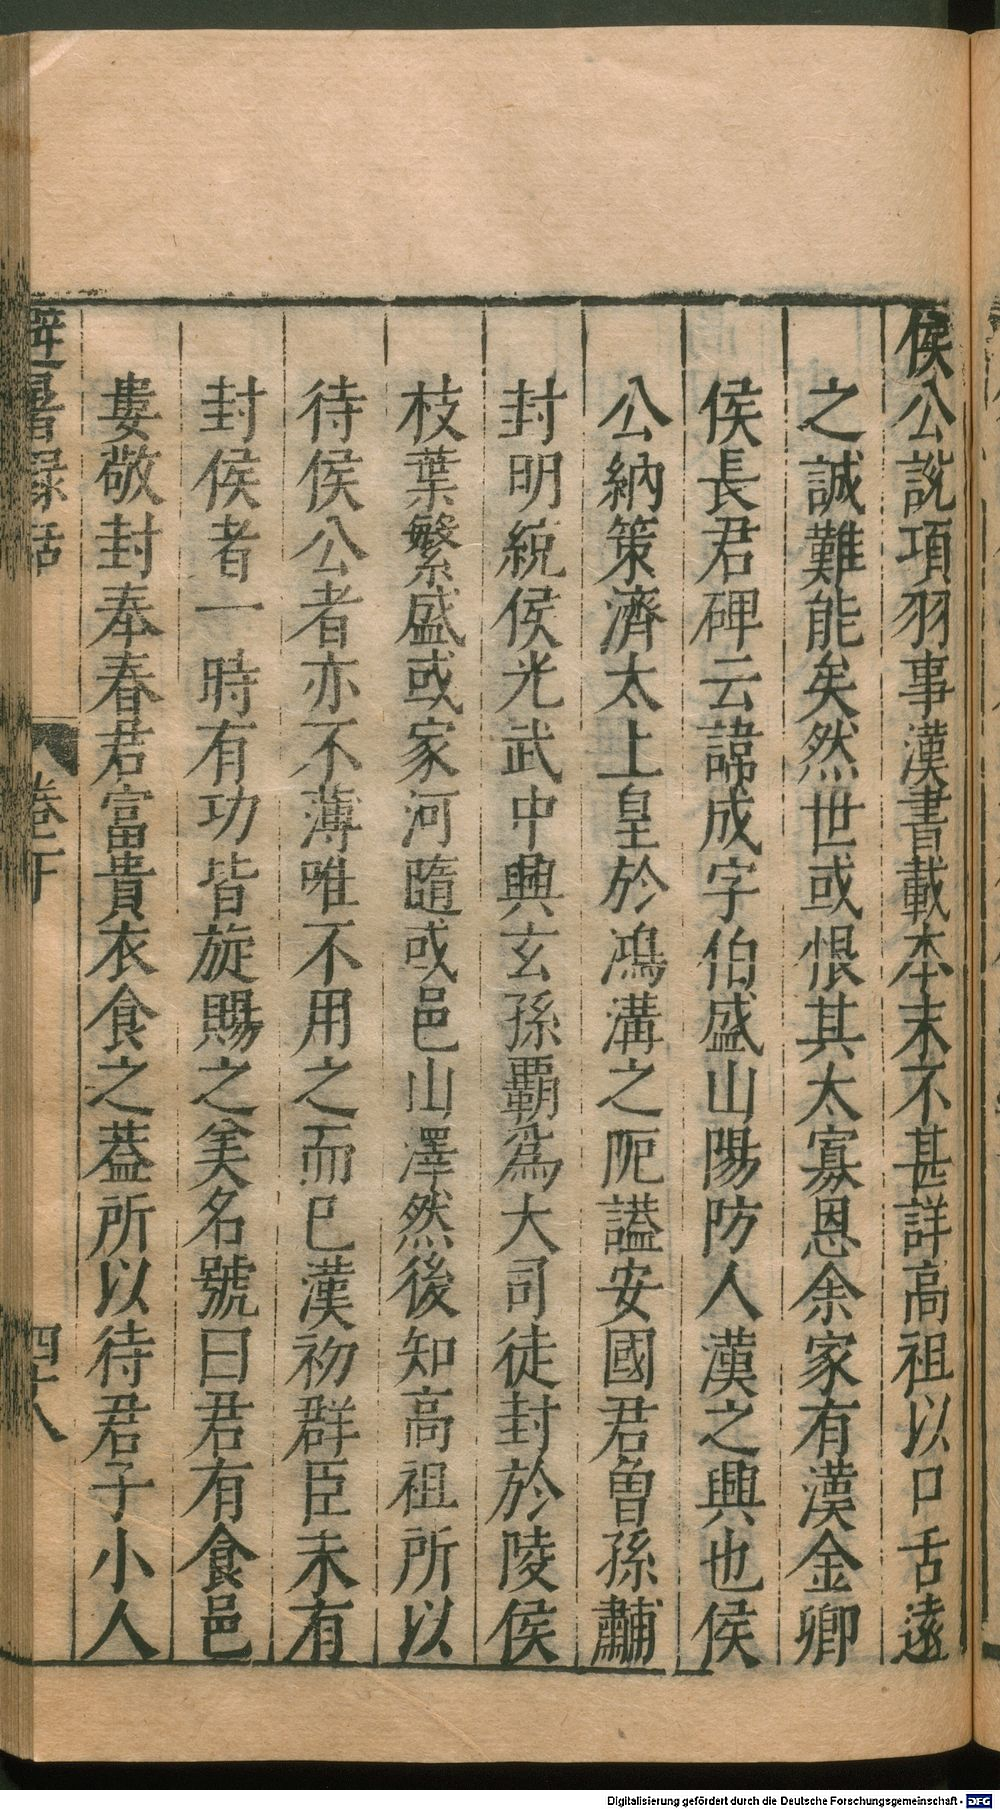 侯公説項羽事漢書載本末不甚詳高祖以口舌遠
之誠難能矣然世或恨其太寡恩余家有漢金鄉
侯長君碑云諱成字伯盛山陽防人漢之興也侯
公納策濟太上皇於鴻溝之阨謚安國君曾孫黼
封明統侯光武中興玄孫霸爲大司徒封於陵侯
枝葉繁盛或家河隨或邑山澤然後知高祖所以
待侯公者亦不薄唯不用之而已漢初群臣未有
封侯者一時有功皆旋賜之美名號曰君有食邑
婁敬封奉春君富貴衣食之葢所以待君子小人
避暑録話
卷下
四十八
Digitalisierung gefördert durch die Deutsche Forschungsgemeinschaft - DFG